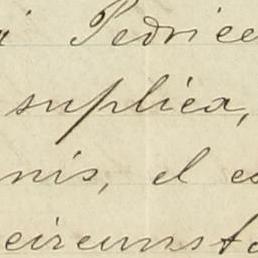 i Pedrice
suplica,
nis, el es
circunsta